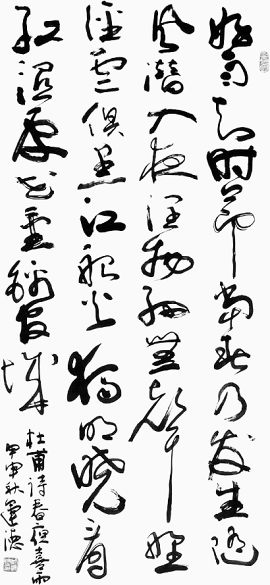 好雨知時節當春乃發生隨
風潛入夜潤物細無聲野
徑雲俱黑江船火獨明曉看
紅濕處花重錦官城
杜甫詩春夜喜雨
甲申秋